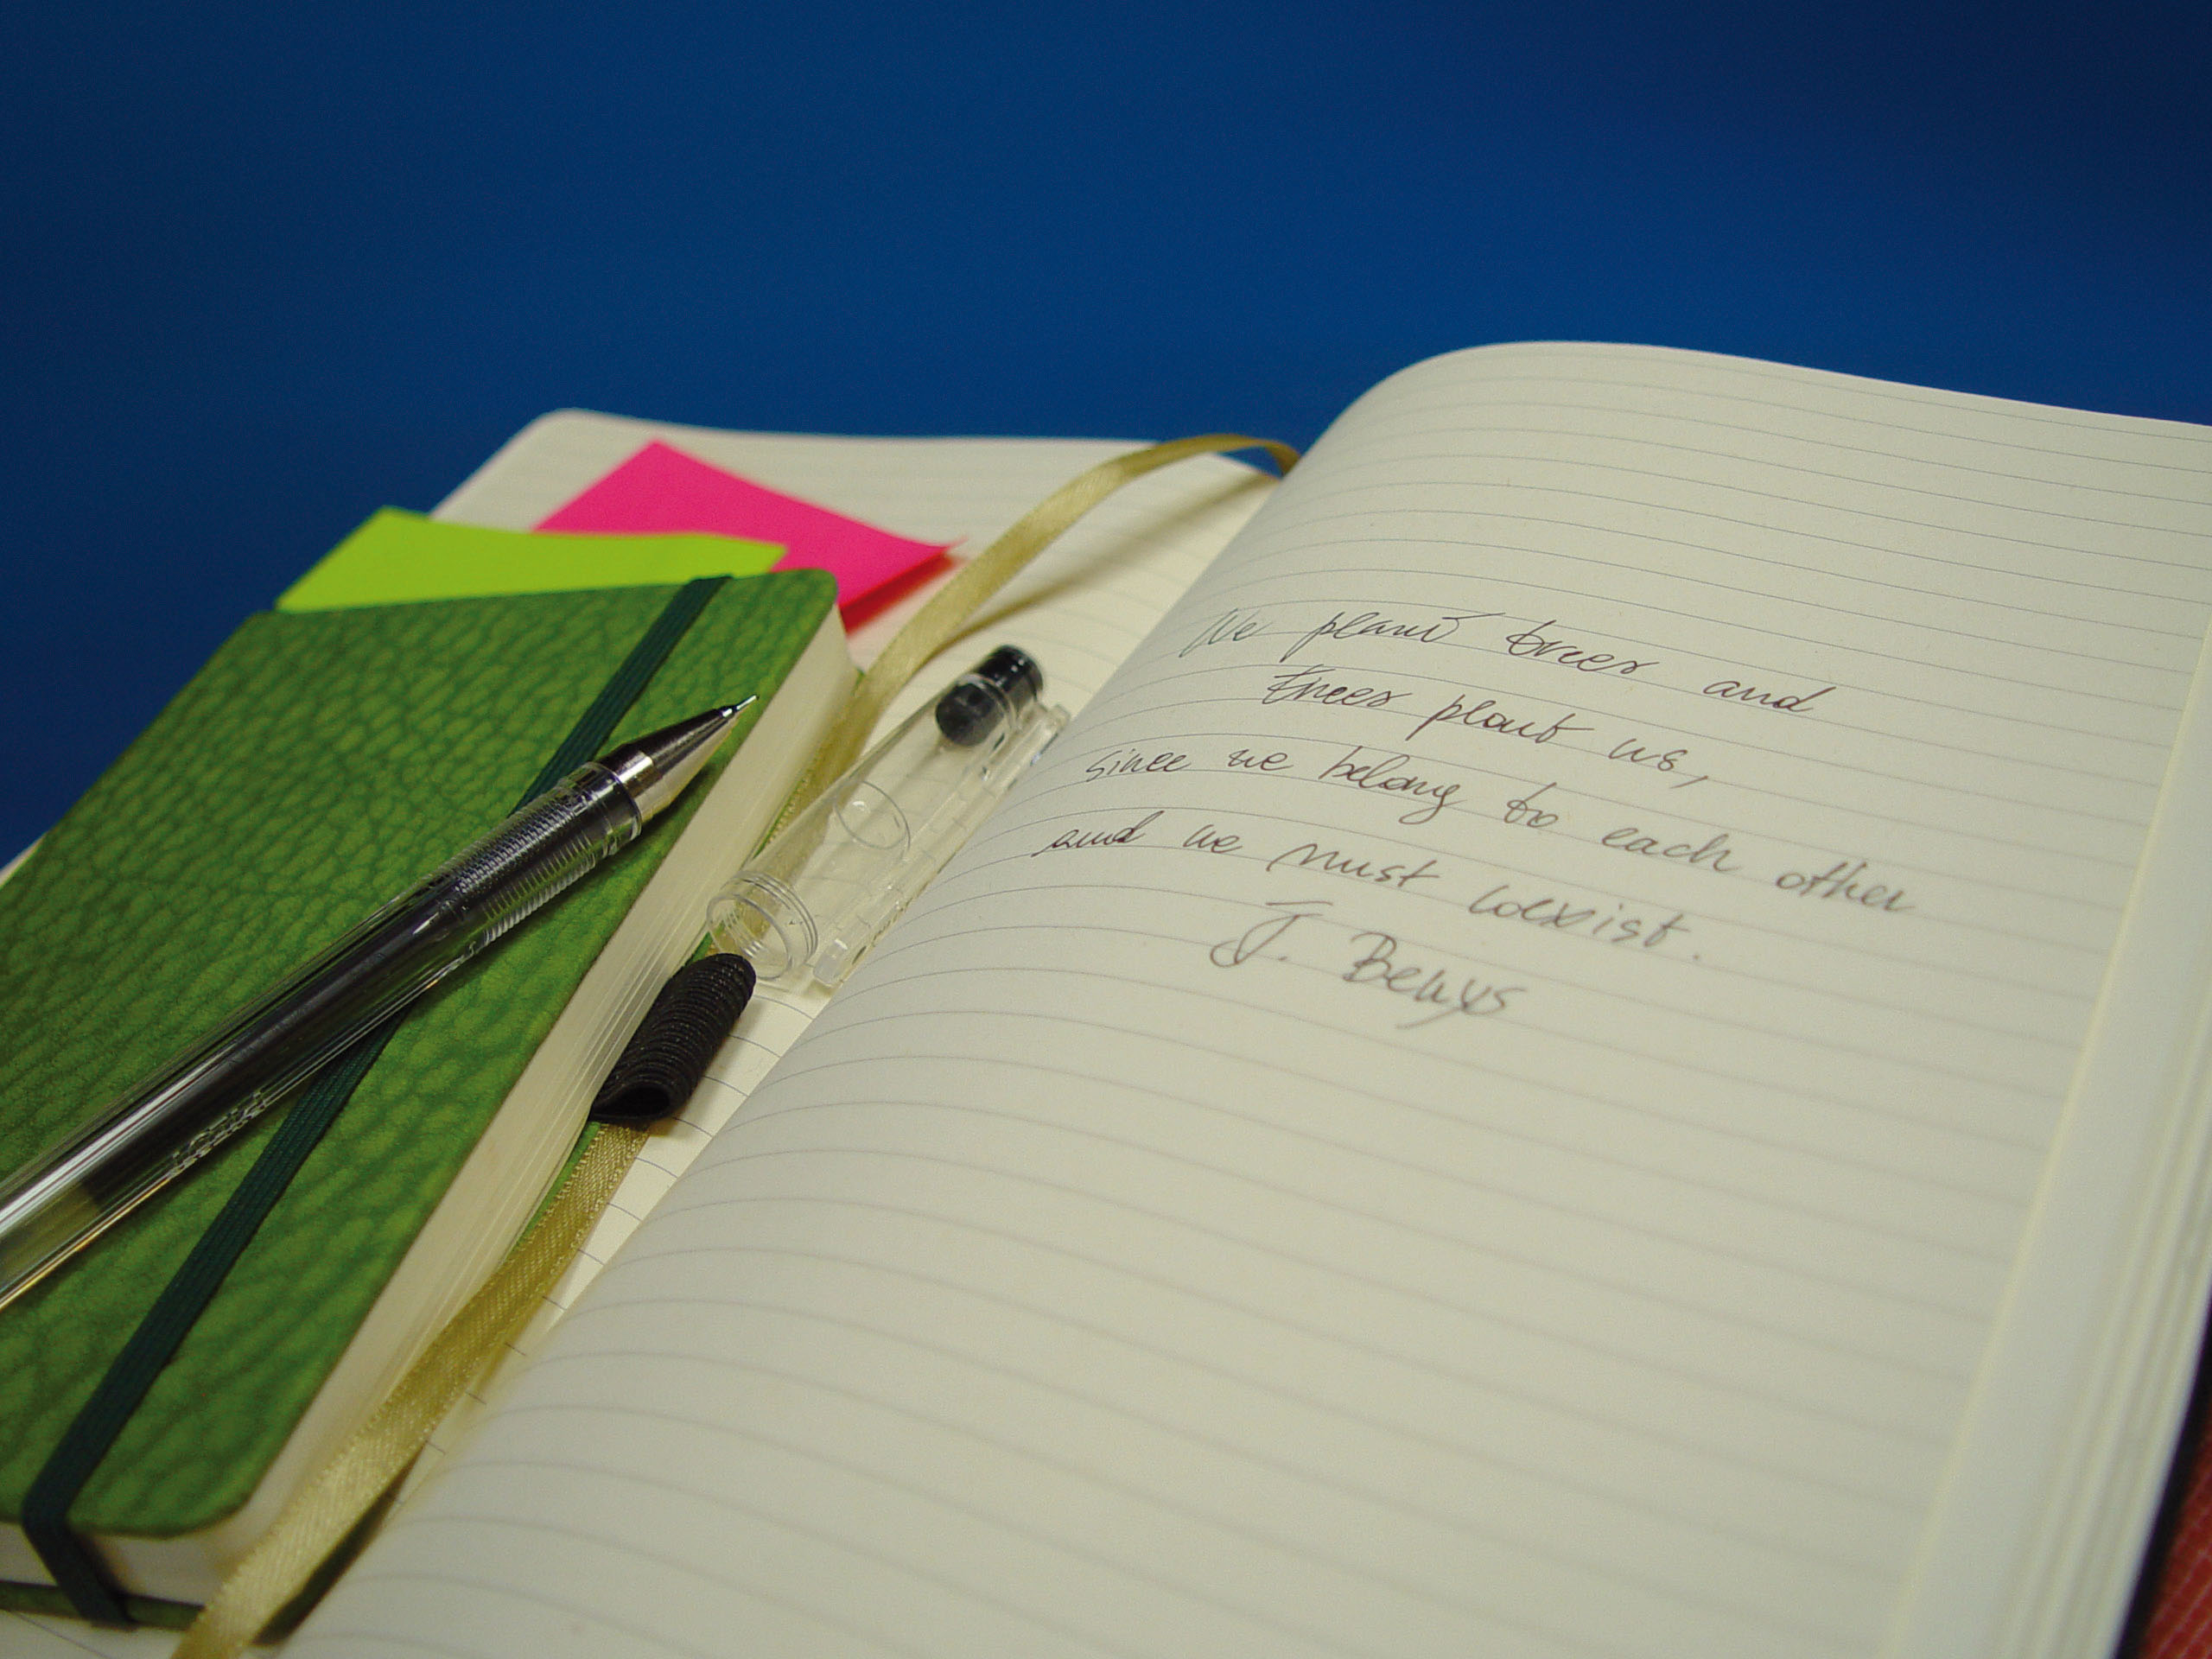 We plant trees and
trees plant us,
since we belong to each other
and we must coexist.
J. Beuys